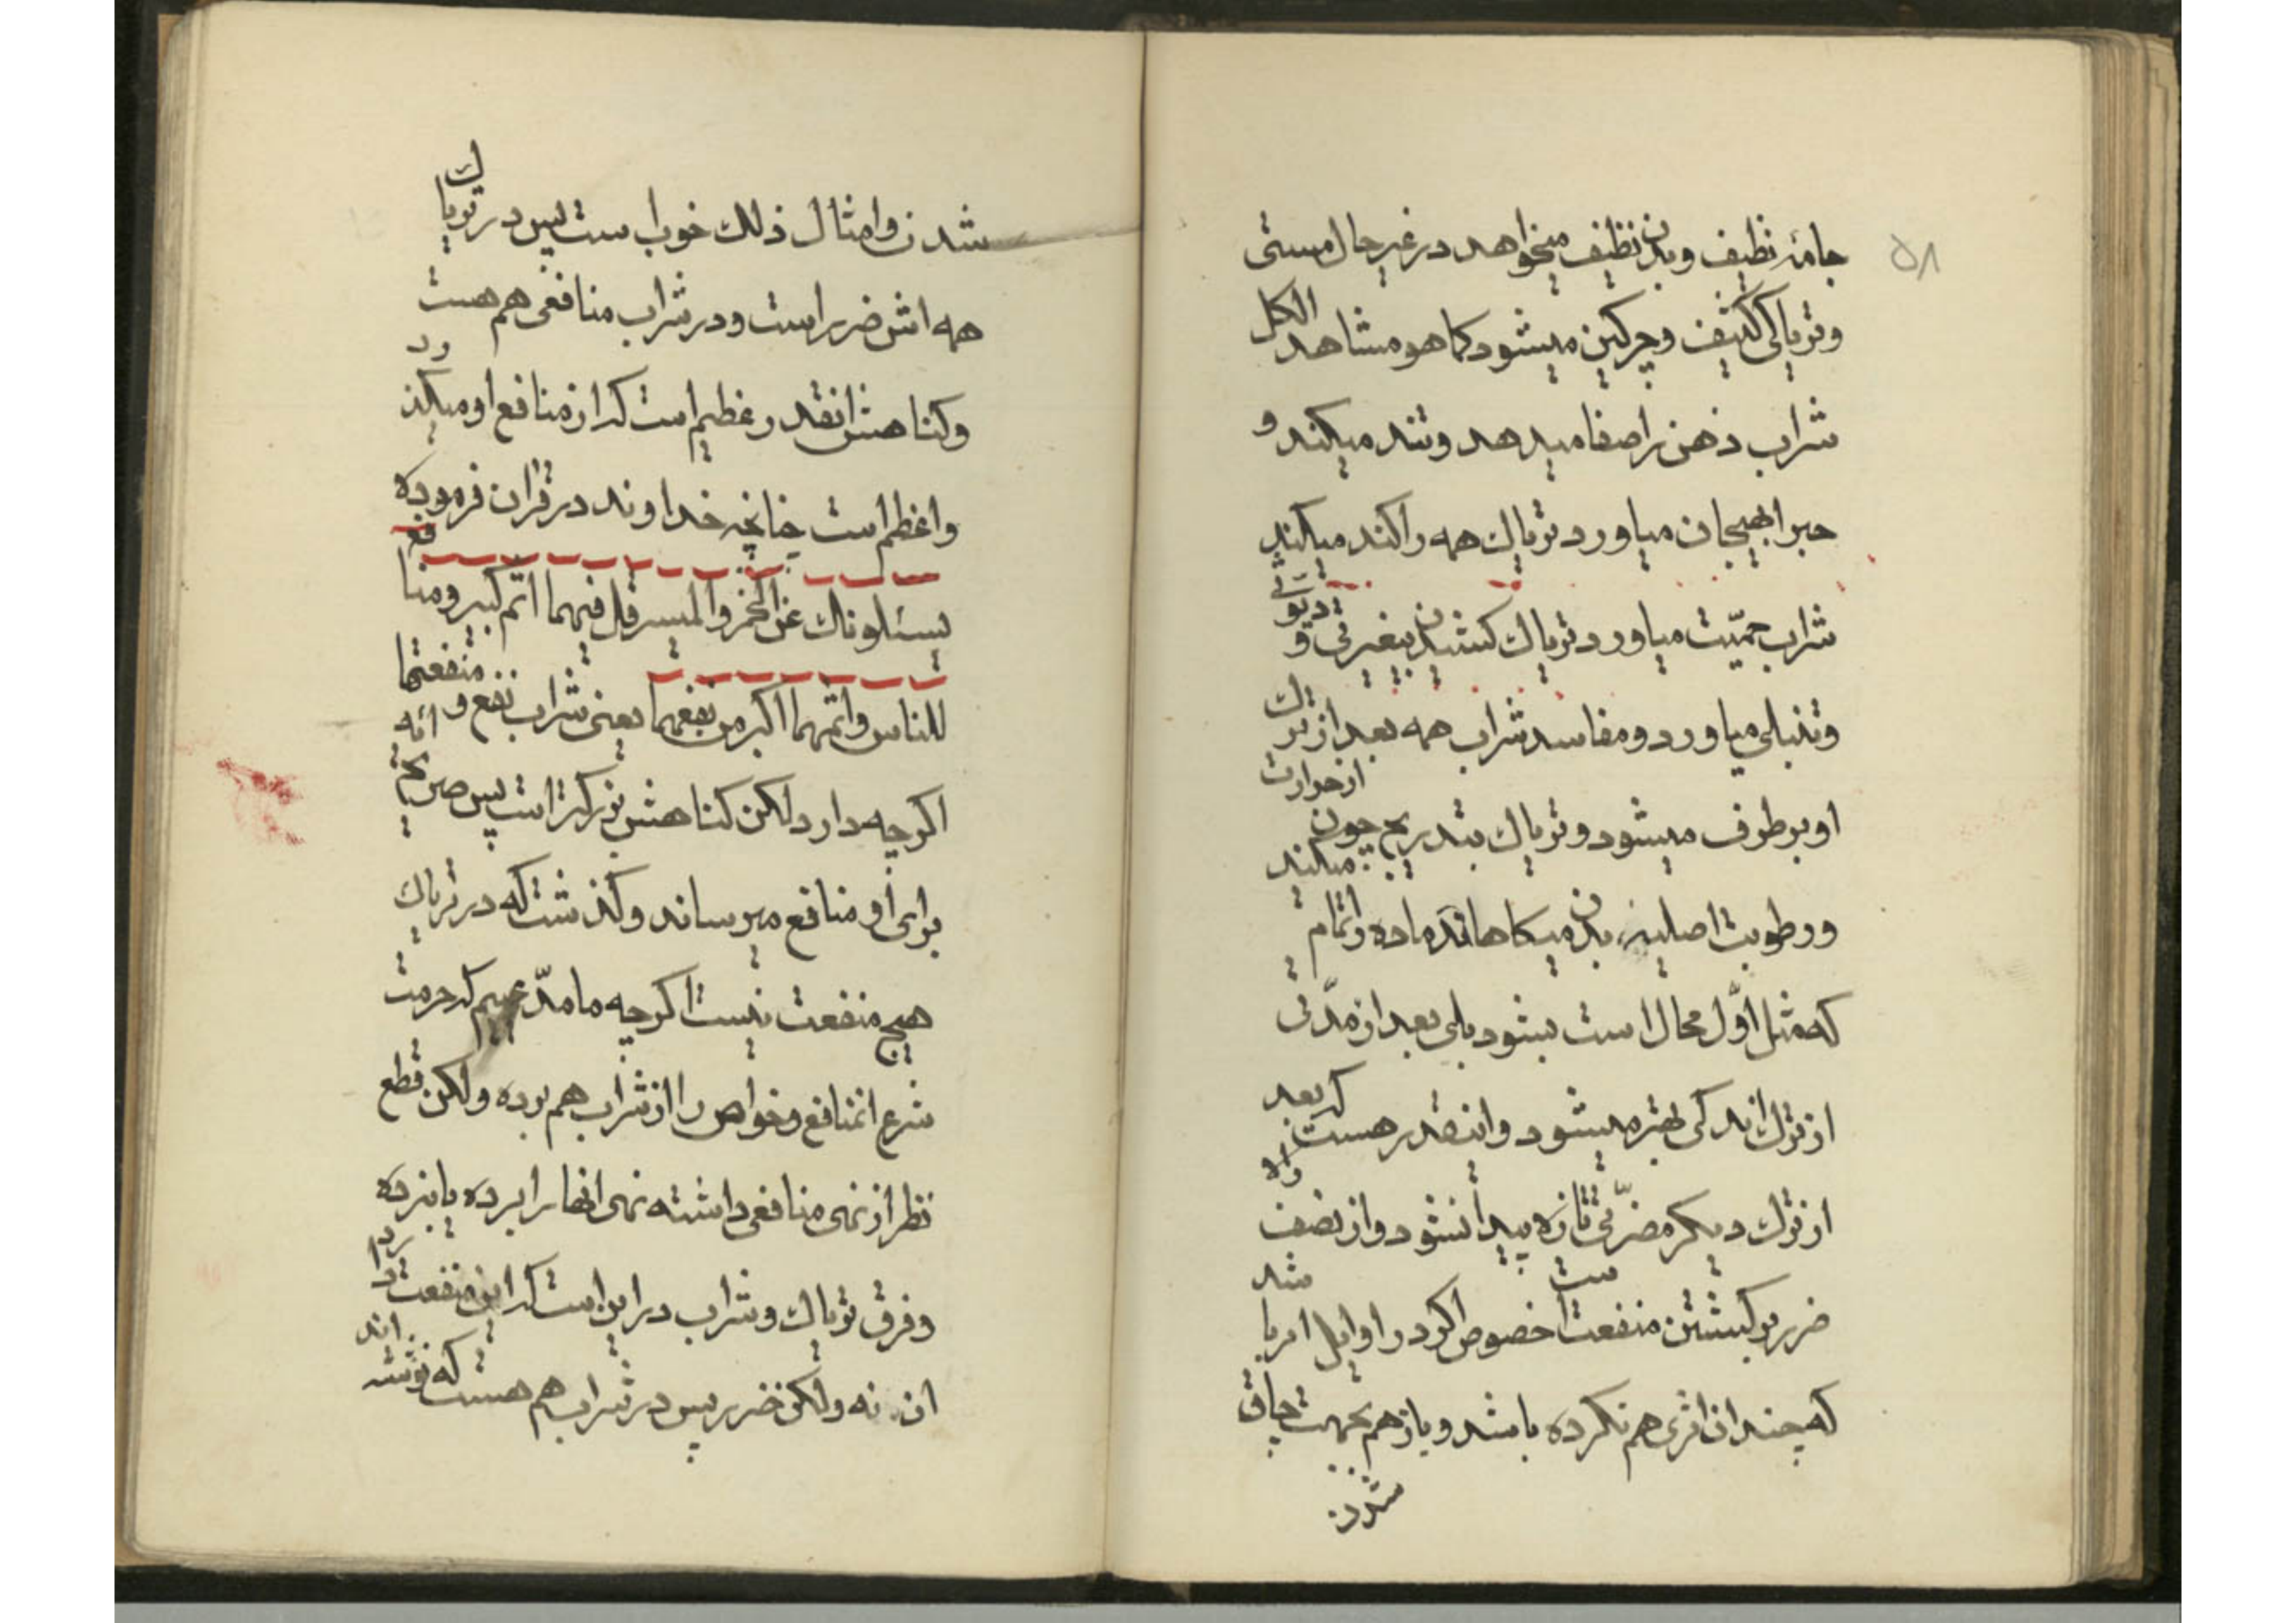 ۵۸
جامۀ نظیف و بدن نظیف میخواهد در غیر حال مستی
و تریاکی کثیف و چرکین میشود کما هو مشاهد الکل
شراب ذهن را صفا میدهد و تند میکند و
حبرا بهیجان میاورد تریاک همه را کند میکند
شراب حمیّت میاورد تریاک کشیدن بیغیرتی و دیوثی
و تنبلی میاورد و مفاسد شراب همه بعد از ترک
او برطرف میشود و تریاک بتدریج چون از حرارت
و رطوبت اصلیه بدن میکاهاند ماده را تمام میکند
که مثل اوّل محال است بشود بلی بعد از مدّتی
از ترک اندکی بهتر میشود و اینقدر هست که بعد
از ترک دیگر مضرّتی تازه پیدا نشود و از نصف راه
ضرر برکشتن منفعت است خصوص اکر در اوایل امر باشد
که چندان اثری هم نکرده باشد و باز هم بجهت چاق
شدن
شدن و امثال ذلک خوب است پس در تریاک
همه اش ضرر است و در شراب منافعی هم هست
و کناهش انقدر عظیم است که از منافع او میکذرد
و اعظم است چنانچه خداوند در قران فرموده
یسئلونک عن الخمر و المیسر قل فیهما اثم کبیر و منافع
للناس و اثمهما اکبر من نفعهما یعنی شراب نفع و منفعتها
اکرچه دارد لکن کناهش بزرکتر است پس صریح ائه
برای او منافع میرساند و کذشت که در تریاک
هیچ منفعت نیست اکرچه ما مدّعیم که حرمت
شرع انمنافع و خواص را از شراب هم برده و لکن قطع
نظر از نهی منافعی داشته نهی انها را برده یا نبرده
و فرق تریاک و شراب در این است که این منفعت دارد
ان نه و لکن ضرر پس در شراب هم هست که نوشته اند